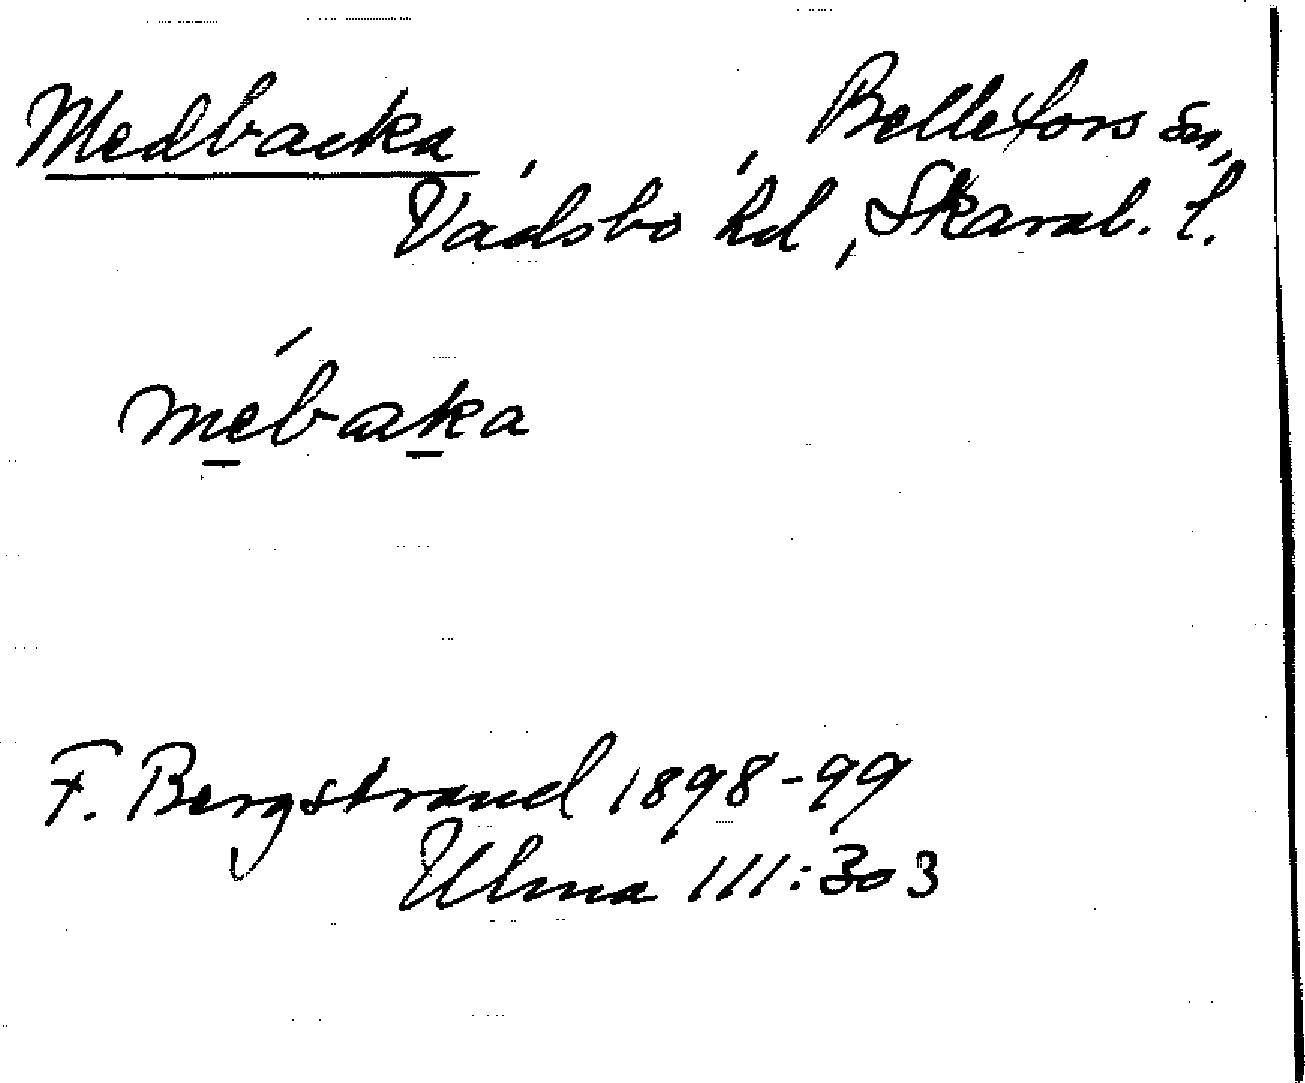 Medbacka, , Bellefors sn,
Vadsbo hd, Skarab. l.
mebaka
F. Bergstrand 1898-99
Ulma 111:303